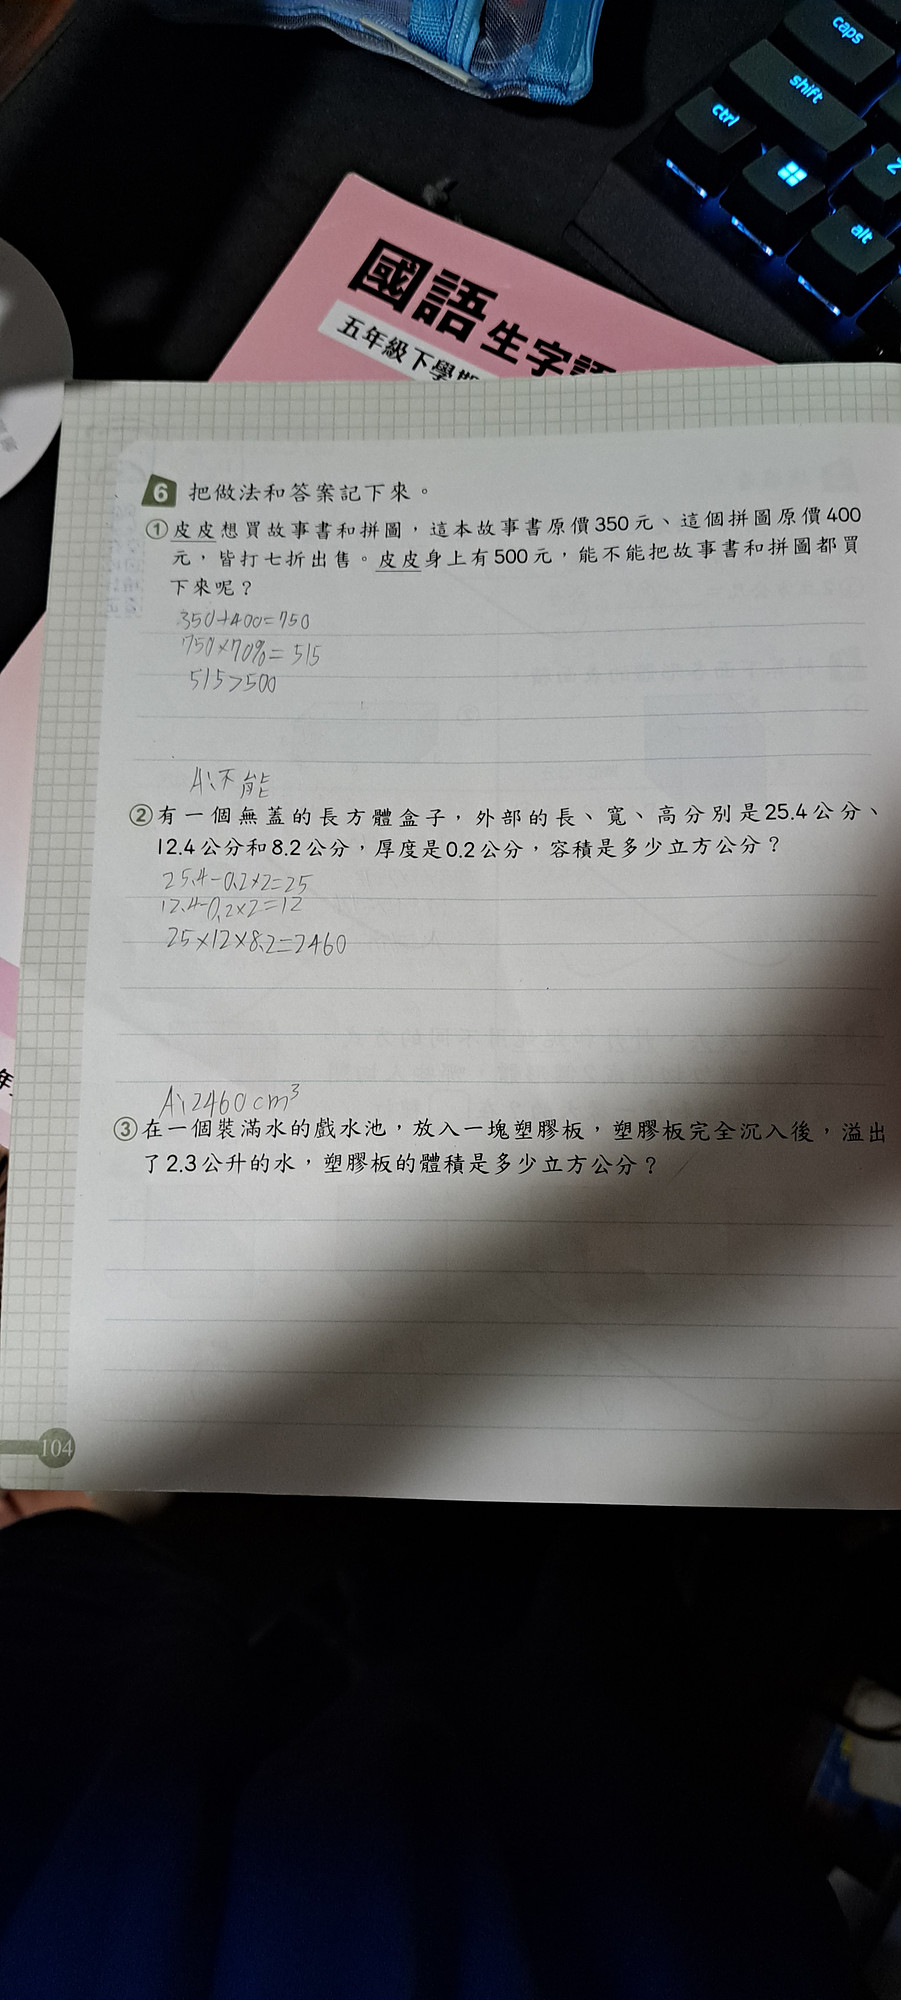 caps
shift
ctrl
Z
alt
國語 生字語
五年級下學期
6 把做法和答案記下來。
①皮皮想買故事書和拼圖，這本故事書原價350元、這個拼圖原價400
元，皆打七折出售。皮皮身上有500元，能不能把故事書和拼圖都買
下來呢？
350+400=750
750×70%=515
515>500
A:不能
②有一個無蓋的長方體盒子，外部的長、寬、高分別是25.4公分、
12.4公分和8.2公分，厚度是0.2公分，容積是多少立方公分？
25.4-0.2×2=25
12.4-0.2×2=12
25×12×8.2=2460
A:2460cm³
③在一個裝滿水的戲水池，放入一塊塑膠板，塑膠板完全沉入後，溢出
了2.3公升的水，塑膠板的體積是多少立方公分？
年
104